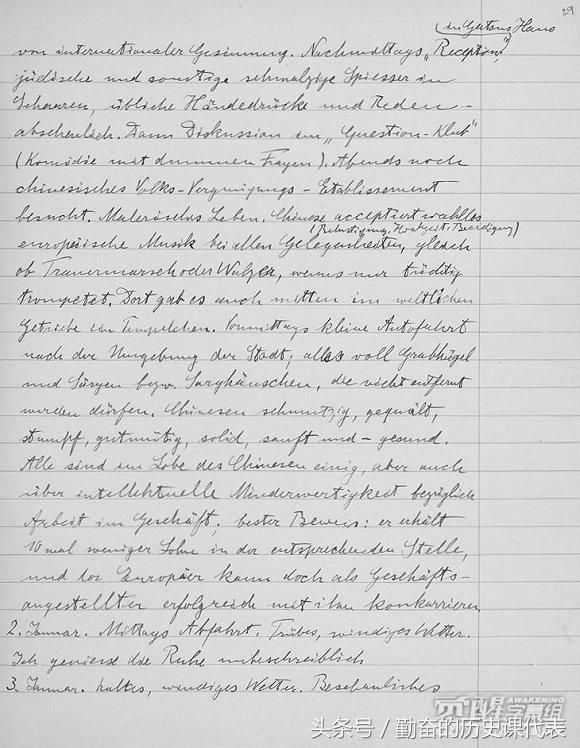 29
in Gattons Haus
von internationaler Gesinnung. Nachmittags „Reception“
jüdische und sonstige schmalzige Spiesser in
Scharen, übliche Händedrücke und Reden –
abscheulich. Dann Diskussion im „Question-Klub“
(Komödie mit dummen Fragen). Abends noch
chinesisches Volks-Vergnügungs-Etablissement
besucht. Malerisches Leben. Chinese acceptiert wahllos
(Belustigung, Hochzeit, Beerdigung)
europäische Musik bei allen Gelegenheiten, gleich
ob Trauermarsch oder Walzer, wenns nur tüchtig
trompetet. Dort gab es auch mitten im weltlichen
Getriebe ein Tempelchen. Vormittags kleine Autofahrt
nach der Umgebung der Stadt; alles voll Grabhügel
und Särgen bezw. Sarghäuschen, die nicht entfernt
werden dürfen. Chinesen schmutzig, gequält,
stumpf, gutmütig, solid, sanft und – gesund.
Alle sind im Lobe des Chinesen einig, aber auch
über intellektuelle Minderwertigkeit bezüglich
Arbeit im Geschäft; bester Beweis: er erhält
10 mal weniger Lohn in der entsprechenden Stelle,
und der Europäer kann doch als Geschäfts-
angestellter erfolgreich mit ihm konkurrieren
2. Januar. Mittags Abfahrt. Trübes, windiges Wetter.
Ich geniesse die Ruhe unbeschreiblich
3. Januar. kaltes, windiges Wetter. Beschauliches
AWAKENING
头条号 / 勤奋的历史课代表